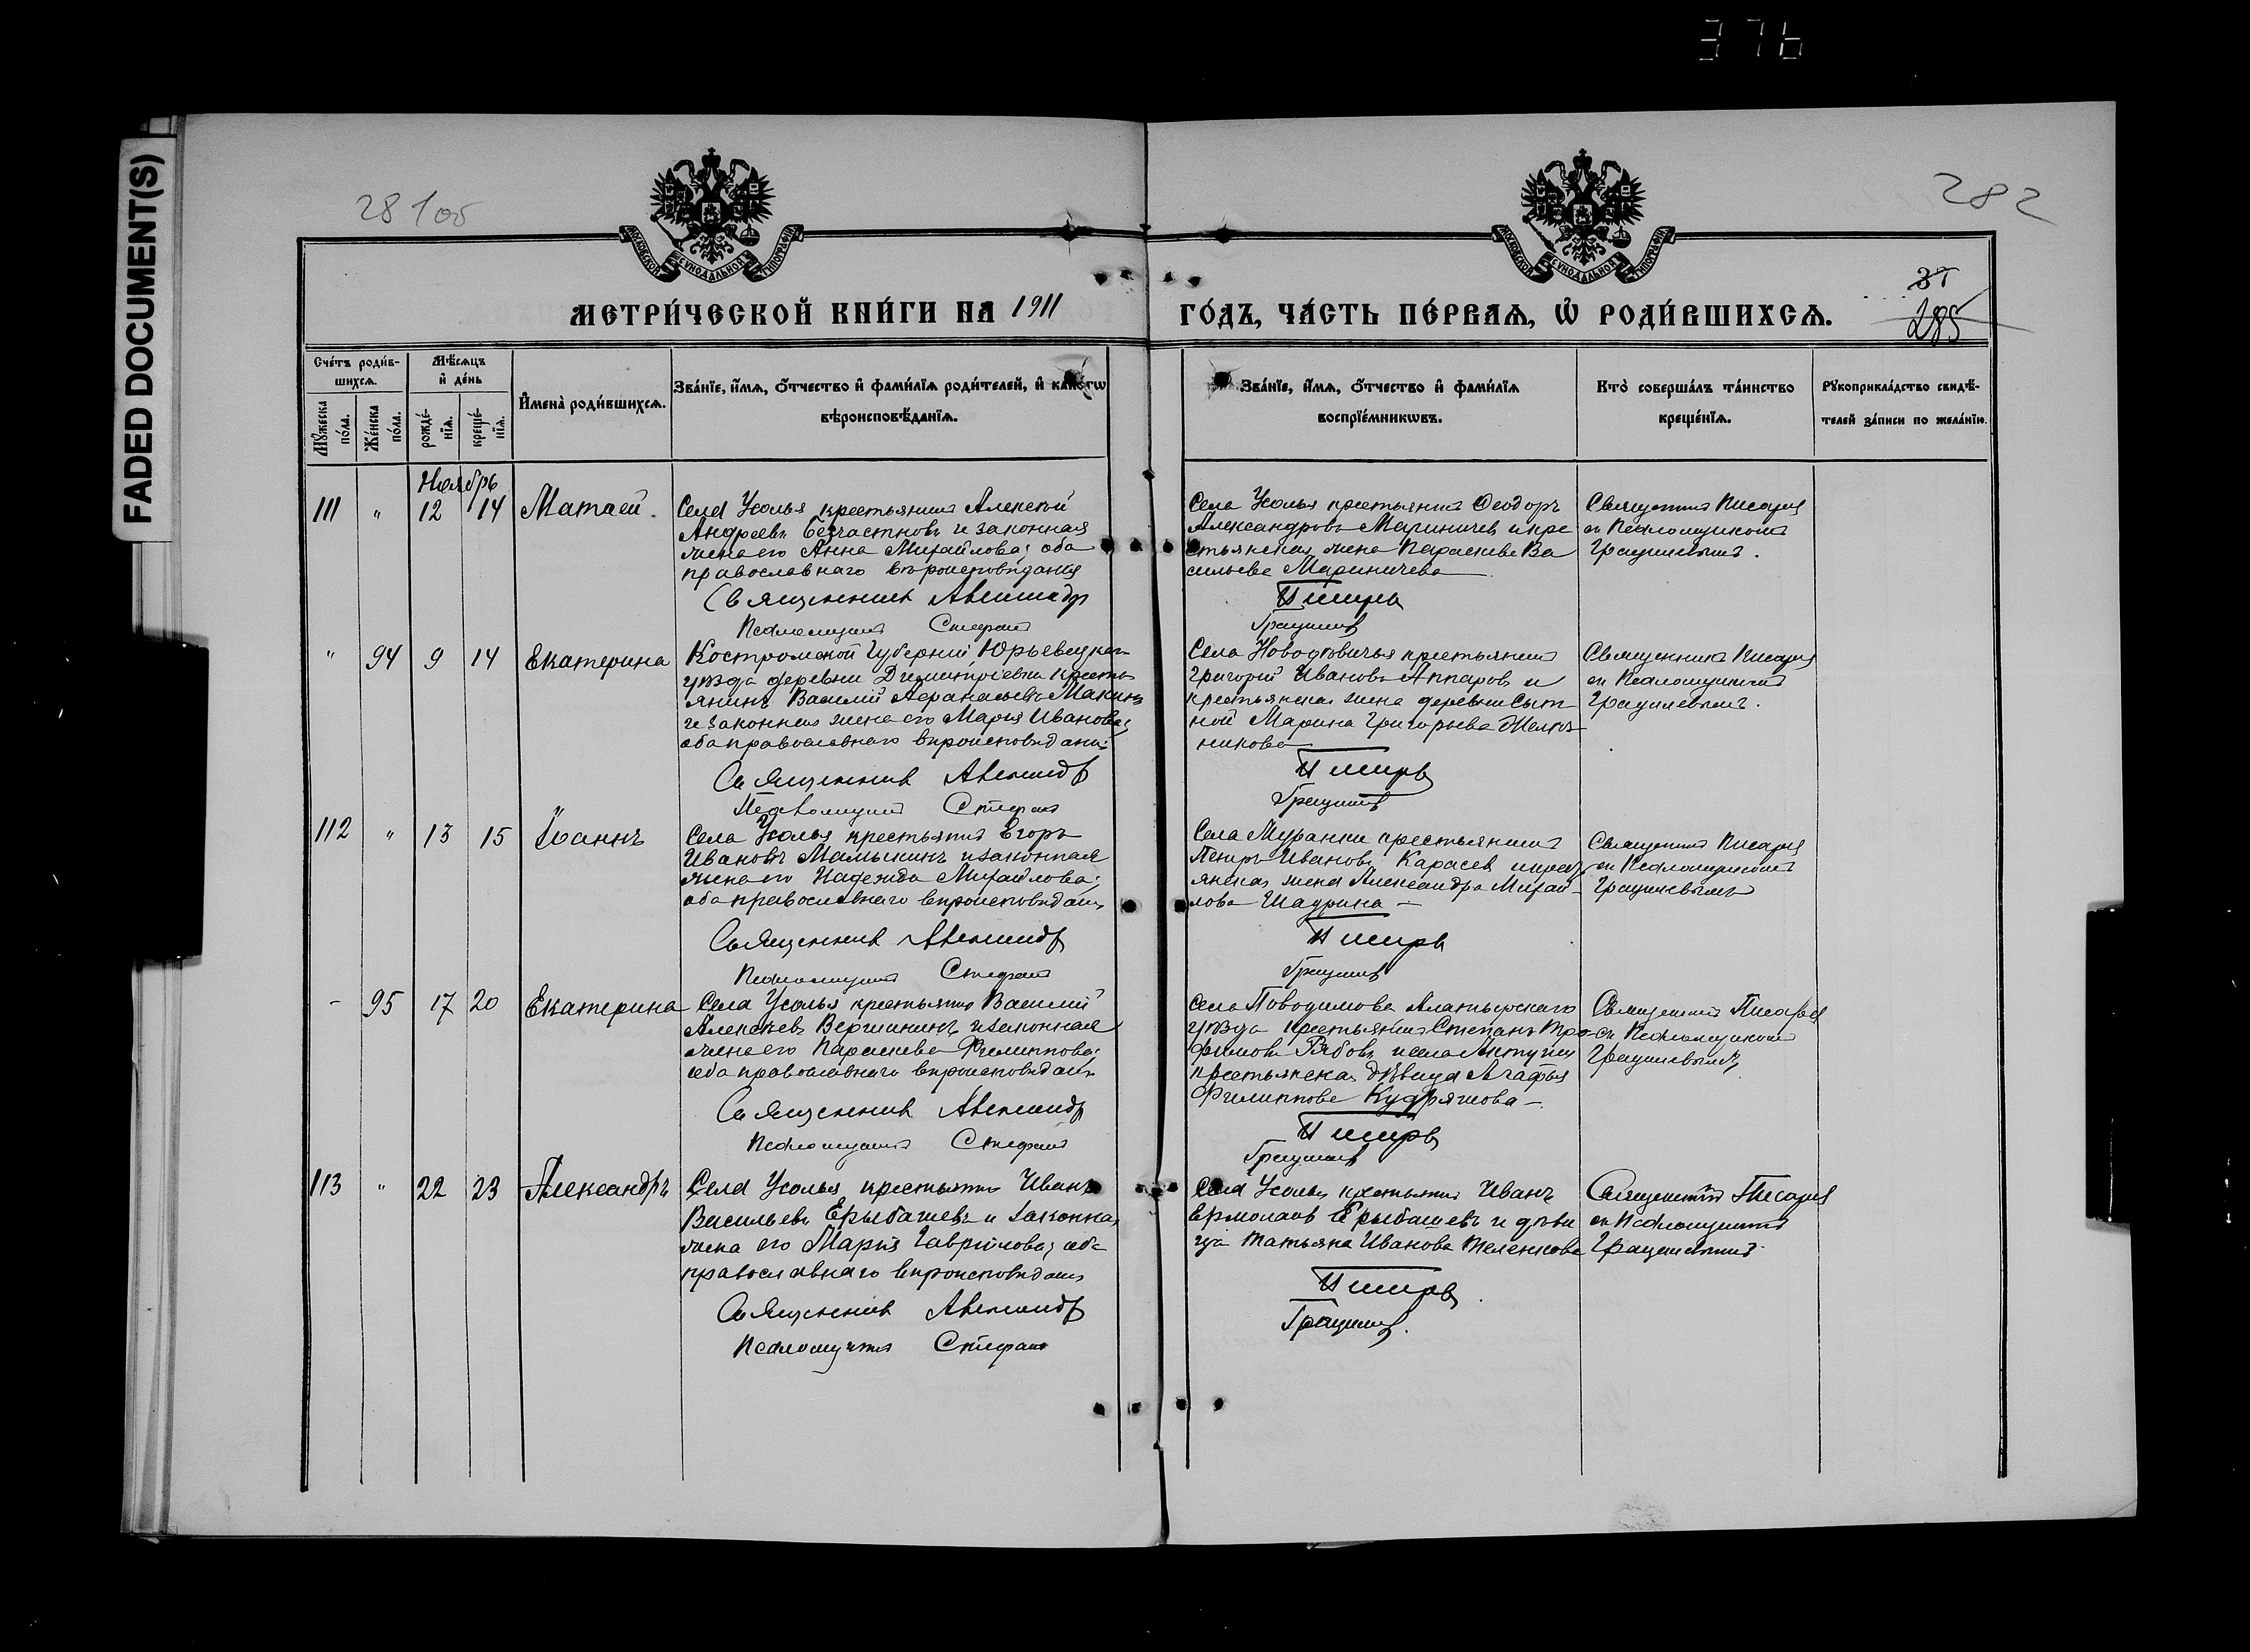 376
FADED DOCUMENT(S)
281об
282
МОСКОВСКОЙ СѴНОДАЛЬНОЙ ТИПОГРАФІИ
МОСКОВСКОЙ СѴНОДАЛЬНОЙ ТИПОГРАФІИ
285
МЕТРИ́ЧЕСКОЙ КНИ́ГИ НА 1911
ГО́ДЪ, ЧА́СТЬ ПЕ́РВАѦ, Ѡ҆ РОДИ́ВШИХСѦ.
Сче́тъ роди́в-
шихсѧ.
Мѣ́сѧцъ
и҆ де́нь
Мꙋ́жеска
по́ла.
Же́нска
по́ла.
рожде́-
нїѧ.
креще́-
нїѧ.
И҆мена̀ роди́вшихсѧ.
Зва́нїе, и҆́мѧ, ѻ҆́тчество и҆ фами́лїѧ роди́телей, и҆ како́гѡ
вѣроисповѣ́данїѧ.
Зва́нїе, и҆́мѧ, ѻ҆́тчество и҆ фами́лїѧ
воспрїе́мникѡвъ.
Кто̀ соверша́лъ та́инство
креще́нїѧ.
Рꙋкоприкла́дство свидѣ́-
телей за́писи по жела́нїю.
Ноябрь
111 " 12 14 Матѳей.
Села Усолья крестьянинъ Алексѣй
Андреевъ Безчастновъ и законная
жена его Анна Михайлова; оба
православнаго вѣроисповѣданія
Священникъ Александръ
Псаломщикъ Стефанъ
Села Усолья крестьянинъ Ѳеодоръ
Александровъ Мариничевъ и кре
стьянская жена Параскева Ва
сильева Мариничева
Писаревъ
Грацилевъ
Священникъ Писаревъ
съ Псаломщикомъ
Грацилевымъ.
" 94 9 14 Екатерина
Костромской Губерніи Юрьевецкаго
уѣзда деревни Димитріевки кресть
янинъ Василій Аѳанасьевъ Макинъ
и законная жена его Марія Иванова;
оба православнаго вѣроисповѣдани:
Священникъ Александръ
Псаломщикъ Стефанъ
Села Новодѣвичья крестьянинъ
Григорій Ивановъ Аппаровъ и
крестьянская жена деревни Сыт
ной Марина Григорьева
никова
Писаревъ
Грацилевъ
Священникъ Писаревъ
съ Псаломщикомъ
Грацилевымъ.
112 " 13 15 Іоаннъ
Села Усолья крестьянинъ Егоръ
Ивановъ Мамыкинъ и законная
жена его Надежда Михайлова;
оба православнаго вѣроисповѣдан.
Священникъ Александръ
Псаломщикъ Стефанъ
Села Муранки крестьянинъ
Петръ Ивановъ Карасев и крест
янская жена Александра Михай-
лова Шадрина -
Писаревъ
Грацилевъ
Священникъ Писаревъ
съ Псаломщикомъ
Грацилевымъ
- 95 17 20 Екатерина
Села Усолья крестьянинъ Василій
Алексѣевъ Вершининъ и законная
жена его Параскева Филиппова;
оба православнаго вѣроисповѣдан.
Священникъ Александръ
Псаломщикъ Стефанъ
Села Поводимова Алатырскаго
уѣзда крестьянинъ Степанъ Тро-
фимовъ Рябовъ и села Актуши
крестьянская дѣвица Агафья
Филиппова Кудряшова -
Писаревъ
Грацилевъ
Священникъ Писаревъ
съ Псаломщикомъ
Грацилевымъ
113 " 22 23 Александръ
Села Усолья крестьянинъ Иванъ
Васильевъ Ерыбашевъ и законная
жена его Марія Гаврилова; оба
православнаго вѣроисповѣдан.
Священникъ Александръ
Псаломщикъ Стефанъ
Села Усолья крестьянинъ Иванъ
Ермолаевъ Ерыбашевъ и дѣви
ца Татьяна Иванова Теленкова
Писаревъ
Грацилевъ.
Священникъ Писаревъ
съ Псаломщикомъ
Грацилевымъ